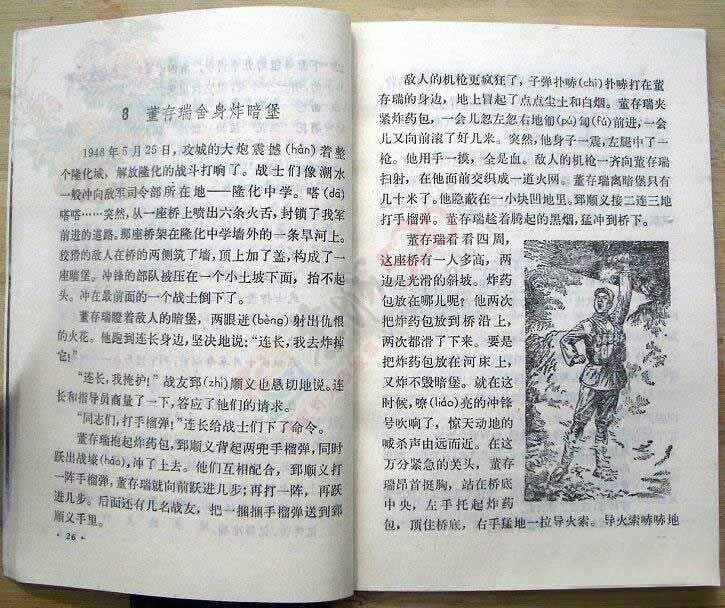 8 董存瑞舍身炸暗堡
1948年5月25日，攻城的大炮震撼(hàn)着整
个隆化城，解放隆化的战斗打响了。战士们像潮水
一般冲向敌军司令部所在地——隆化中学。嗒(dā)
嗒嗒……突然，从一座桥上喷出六条火舌，封锁了我军
前进的道路。那座桥架在隆化中学墙外的一条旱河上。
狡猾的敌人在桥的两侧筑了墙，顶上加了盖，构成了一
座暗堡。冲锋的部队被压在一个小土坡下面，抬不起
头。冲在最前面的一个战士倒下了。
董存瑞瞪着敌人的暗堡，两眼迸(bèng)射出仇恨
的火花。他跑到连长身边，坚决地说：“连长，我去炸掉
它！”
“连长，我掩护！”战友郅(zhì)顺义也恳切地说。连
长和指导员商量了一下，答应了他们的请求。
“同志们，打手榴弹！”连长给战士们下了命令。
董存瑞抱起炸药包，郅顺义背起两兜手榴弹，同时
跃出战壕(háo)，冲了上去。他们互相配合，郅顺义打
一阵手榴弹，董存瑞就向前跃进几步；再打一阵，再跃
进几步。后面还有几名战友，把一捆捆手榴弹送到郅
顺义手里。
· 26 ·
敌人的机枪更疯狂了，子弹扑哧(chī)扑哧打在董
存瑞的身边，地上冒起了点点尘土和白烟。董存瑞夹
紧炸药包，一会儿忽左忽右地匍(pú)匐(fú)前进，一会
儿又向前滚了好几米。突然，他身子一震，左腿中了一
枪。他用手一摸，全是血。敌人的机枪一齐向董存瑞
扫射，在他面前交织成一道火网。董存瑞离暗堡只有
几十米了。他隐蔽在一小块凹地里。郅顺义接二连三地
打手榴弹。董存瑞趁着腾起的黑烟，猛冲到桥下。
董存瑞看看四周，
这座桥有一人多高，两
边是光滑的斜坡。炸药
包放在哪儿呢？他两次
把炸药包放到桥沿上，
两次都滑了下来。要是
把炸药包放在河床上，
又炸不毁暗堡。就在这
时候，嘹(liáo)亮的冲锋
号吹响了，惊天动地的
喊杀声由远而近。在这
万分紧急的关头，董存
瑞昂首挺胸，站在桥底
中央，左手托起炸药
包，顶住桥底，右手猛地一拉导火索。导火索哧哧地